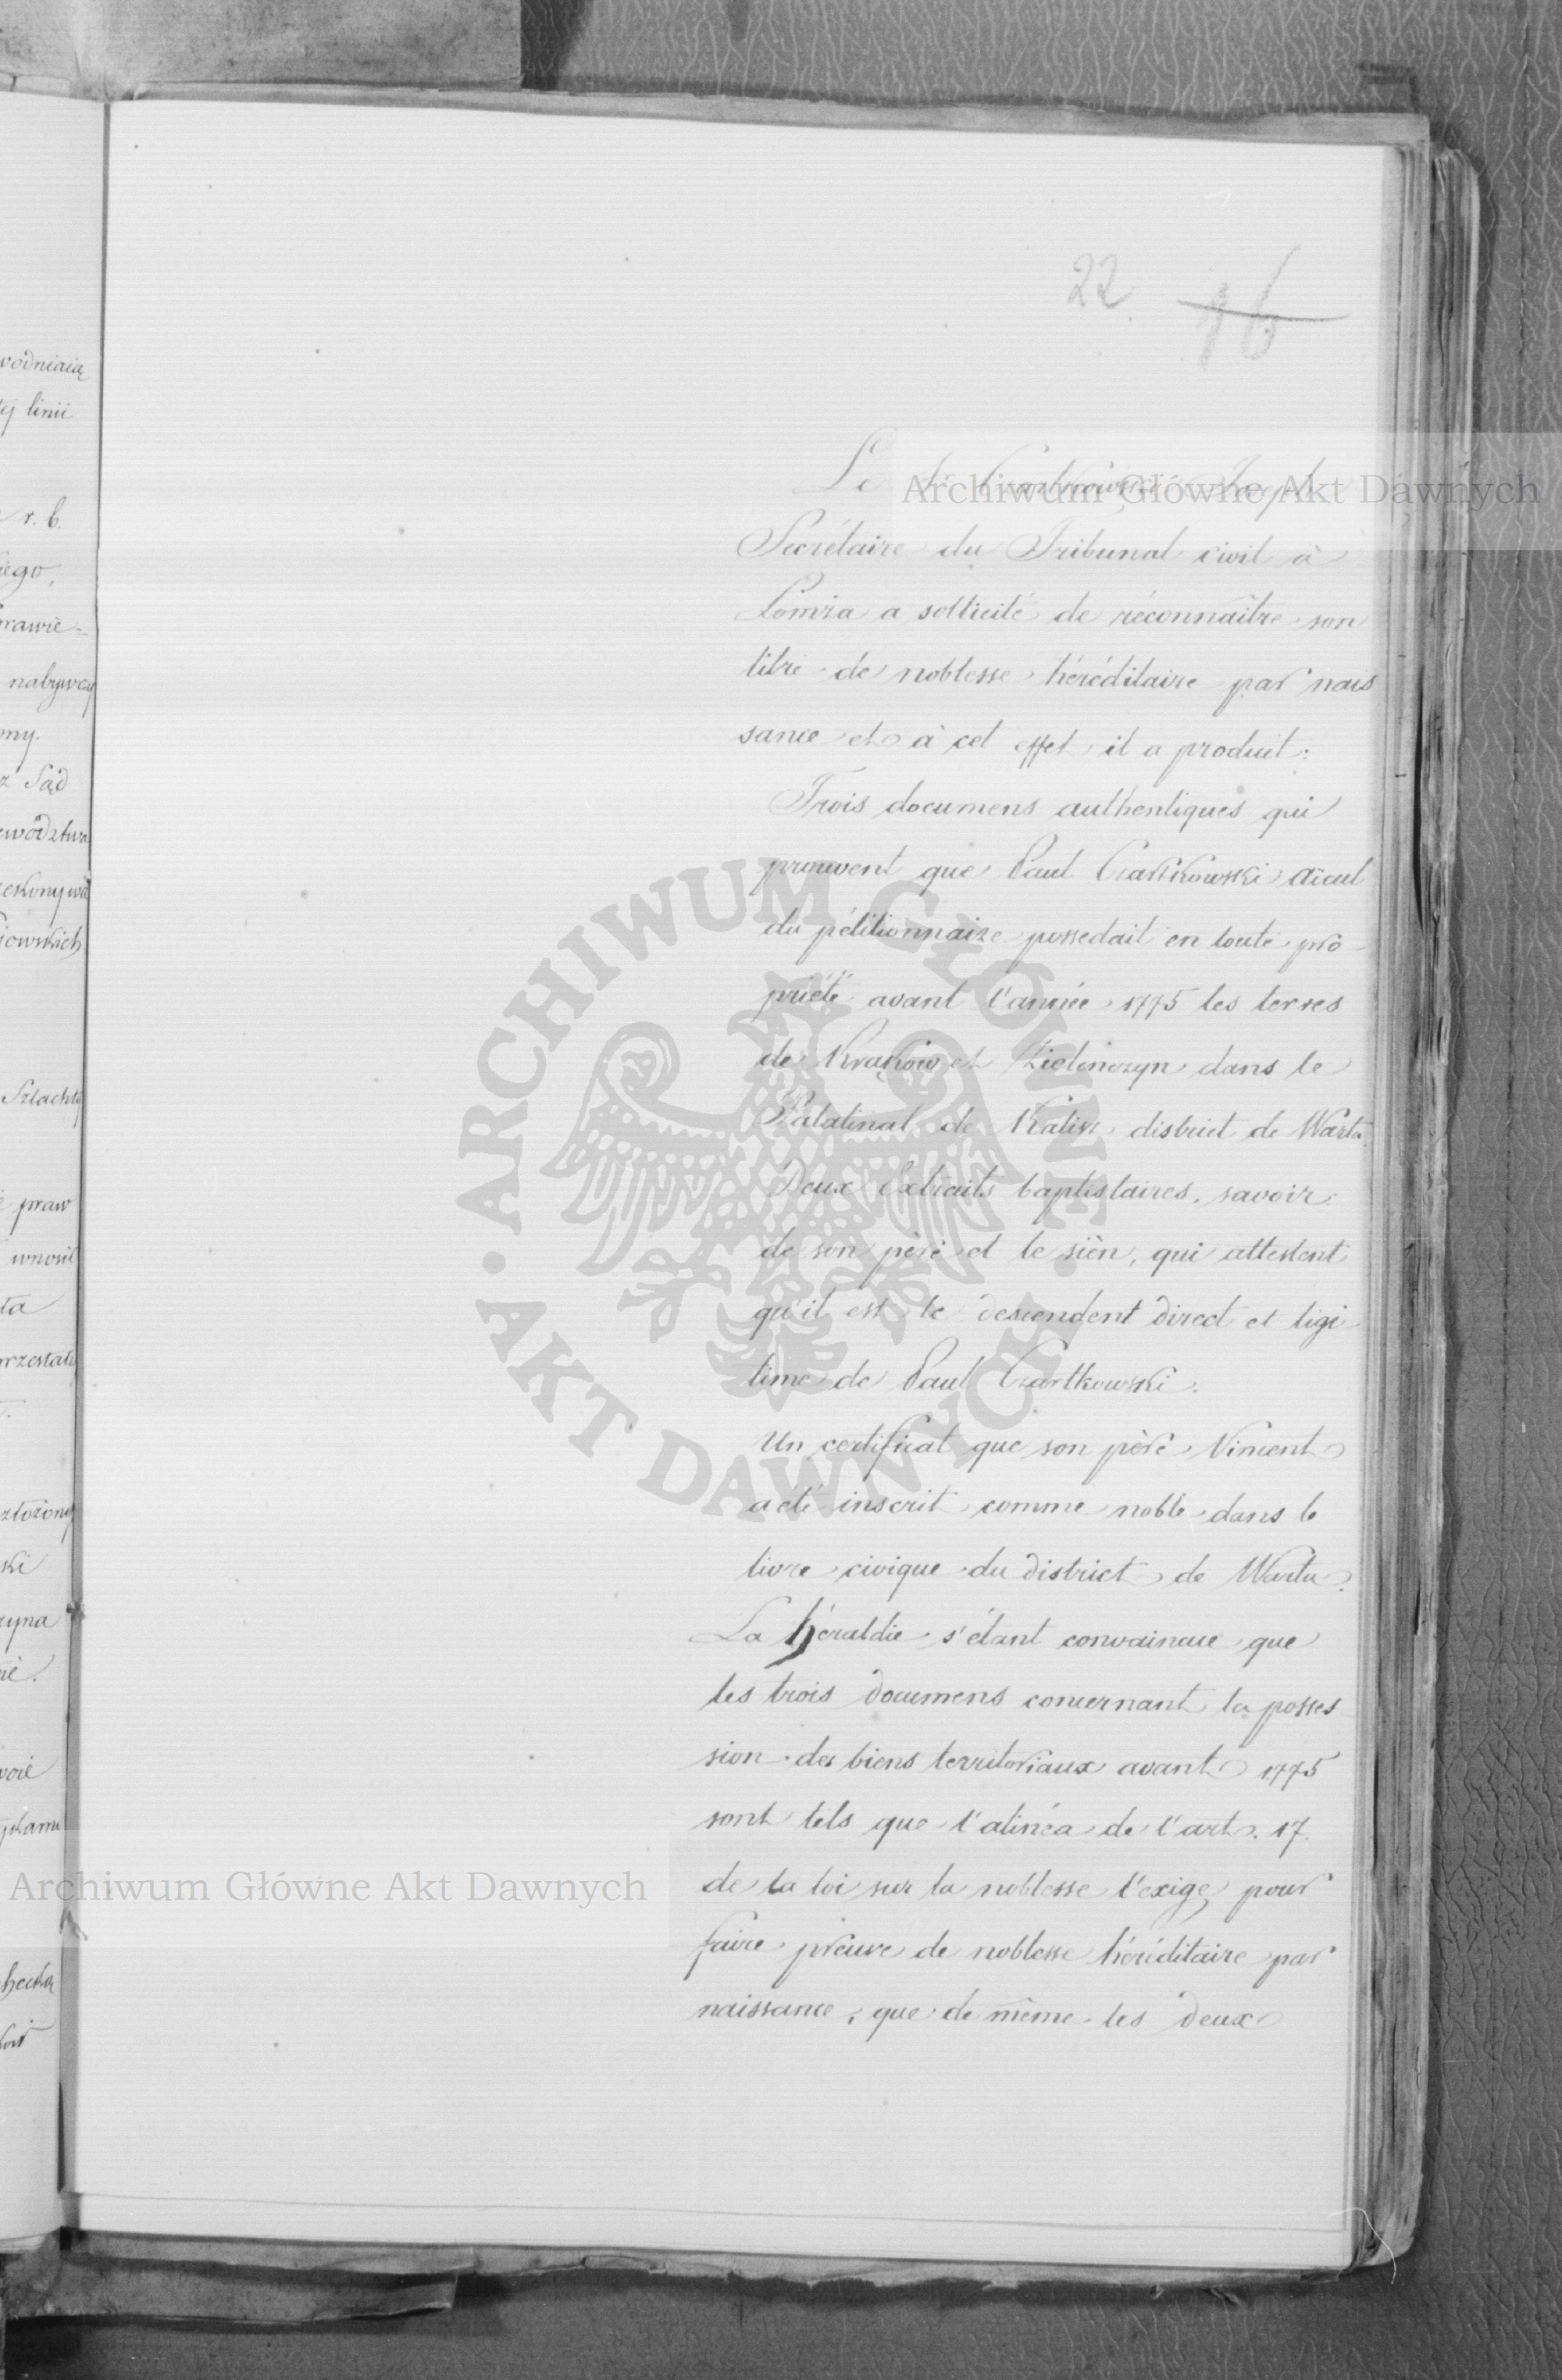 vodniaią
tej linii
r. b.
iego,
prawie=
nabywcy
ony.
z Sąd
ewództwa
iowskich
Szlachta
praw
wnosił
ta
przestał
złożony
ski
zyna
nie.
22. 16
Le Sr. Czartkowski Joseph
Secrétaire du Tribunal civil à
Łomża a sollicité de réconnaître son
titre de noblesse héréditaire par nais
sance et à cet effet il a produit:
Trois documens authentiques qui
prouvent que Paul Czartkowski aïeul
du pétitionnaire possedait en toute pro-
priété avant l'année 1775 les terres
de Krąków et Zielenczyn dans le
Palatinat de Kalisz district de Warta.
Deux Extraits baptistaires, savoir:
de son père et le sièn, qui attestent
qu'il est le descendent direct et ligi
time de Paul Czartkowski.
Un certificat que son père Vincent
a été inscrit comme noble dans le
livre civique du district de Warta.
La héraldie s'étant convaincue que
les trois documens concernant la posses
sion des biens territoriaux avant 1775
sont tels que l'alinéa de l'art. 17.
de la loi sur la noblesse l'exige pour
faire preuve de noblesse héréditaire par
naissance, que de même les deux
Archiwum Główne Akt Dawnych
ARCHIWUM GŁÓWNE
AKT DAWNYCH
Archiwum Główne Akt Dawnych